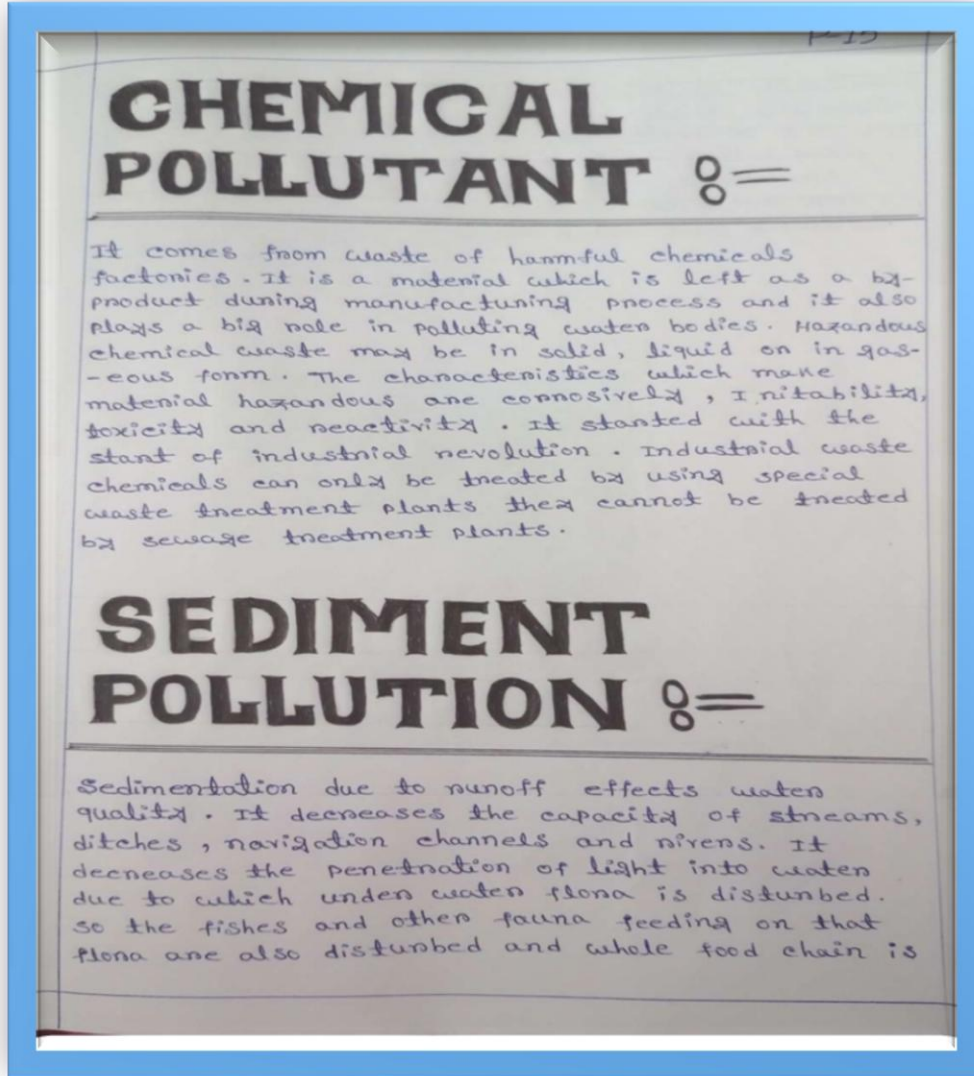 P-15
CHEMICAL
POLLUTANT :=
It comes from waste of harmful chemicals
factories. It is a material which is left as a by-
product during manufacturing process and it also
plays a big role in polluting water bodies. Hazardous
chemical waste may be in solid, liquid or in gas-
-eous form. The characteristics which make
material hazardous are corrosively, Initability,
toxicity and reactivity. It started with the
start of industrial revolution. Industrial waste
chemicals can only be treated by using special
waste treatment plants they cannot be treated
by sewage treatment plants.
SEDIMENT
POLLUTION :=
Sedimentation due to runoff effects water
quality. It decreases the capacity of streams,
ditches, navigation channels and rivers. It
decreases the penetration of light into water
due to which under water flora is disturbed.
So the fishes and other fauna feeding on that
flora are also disturbed and whole food chain is